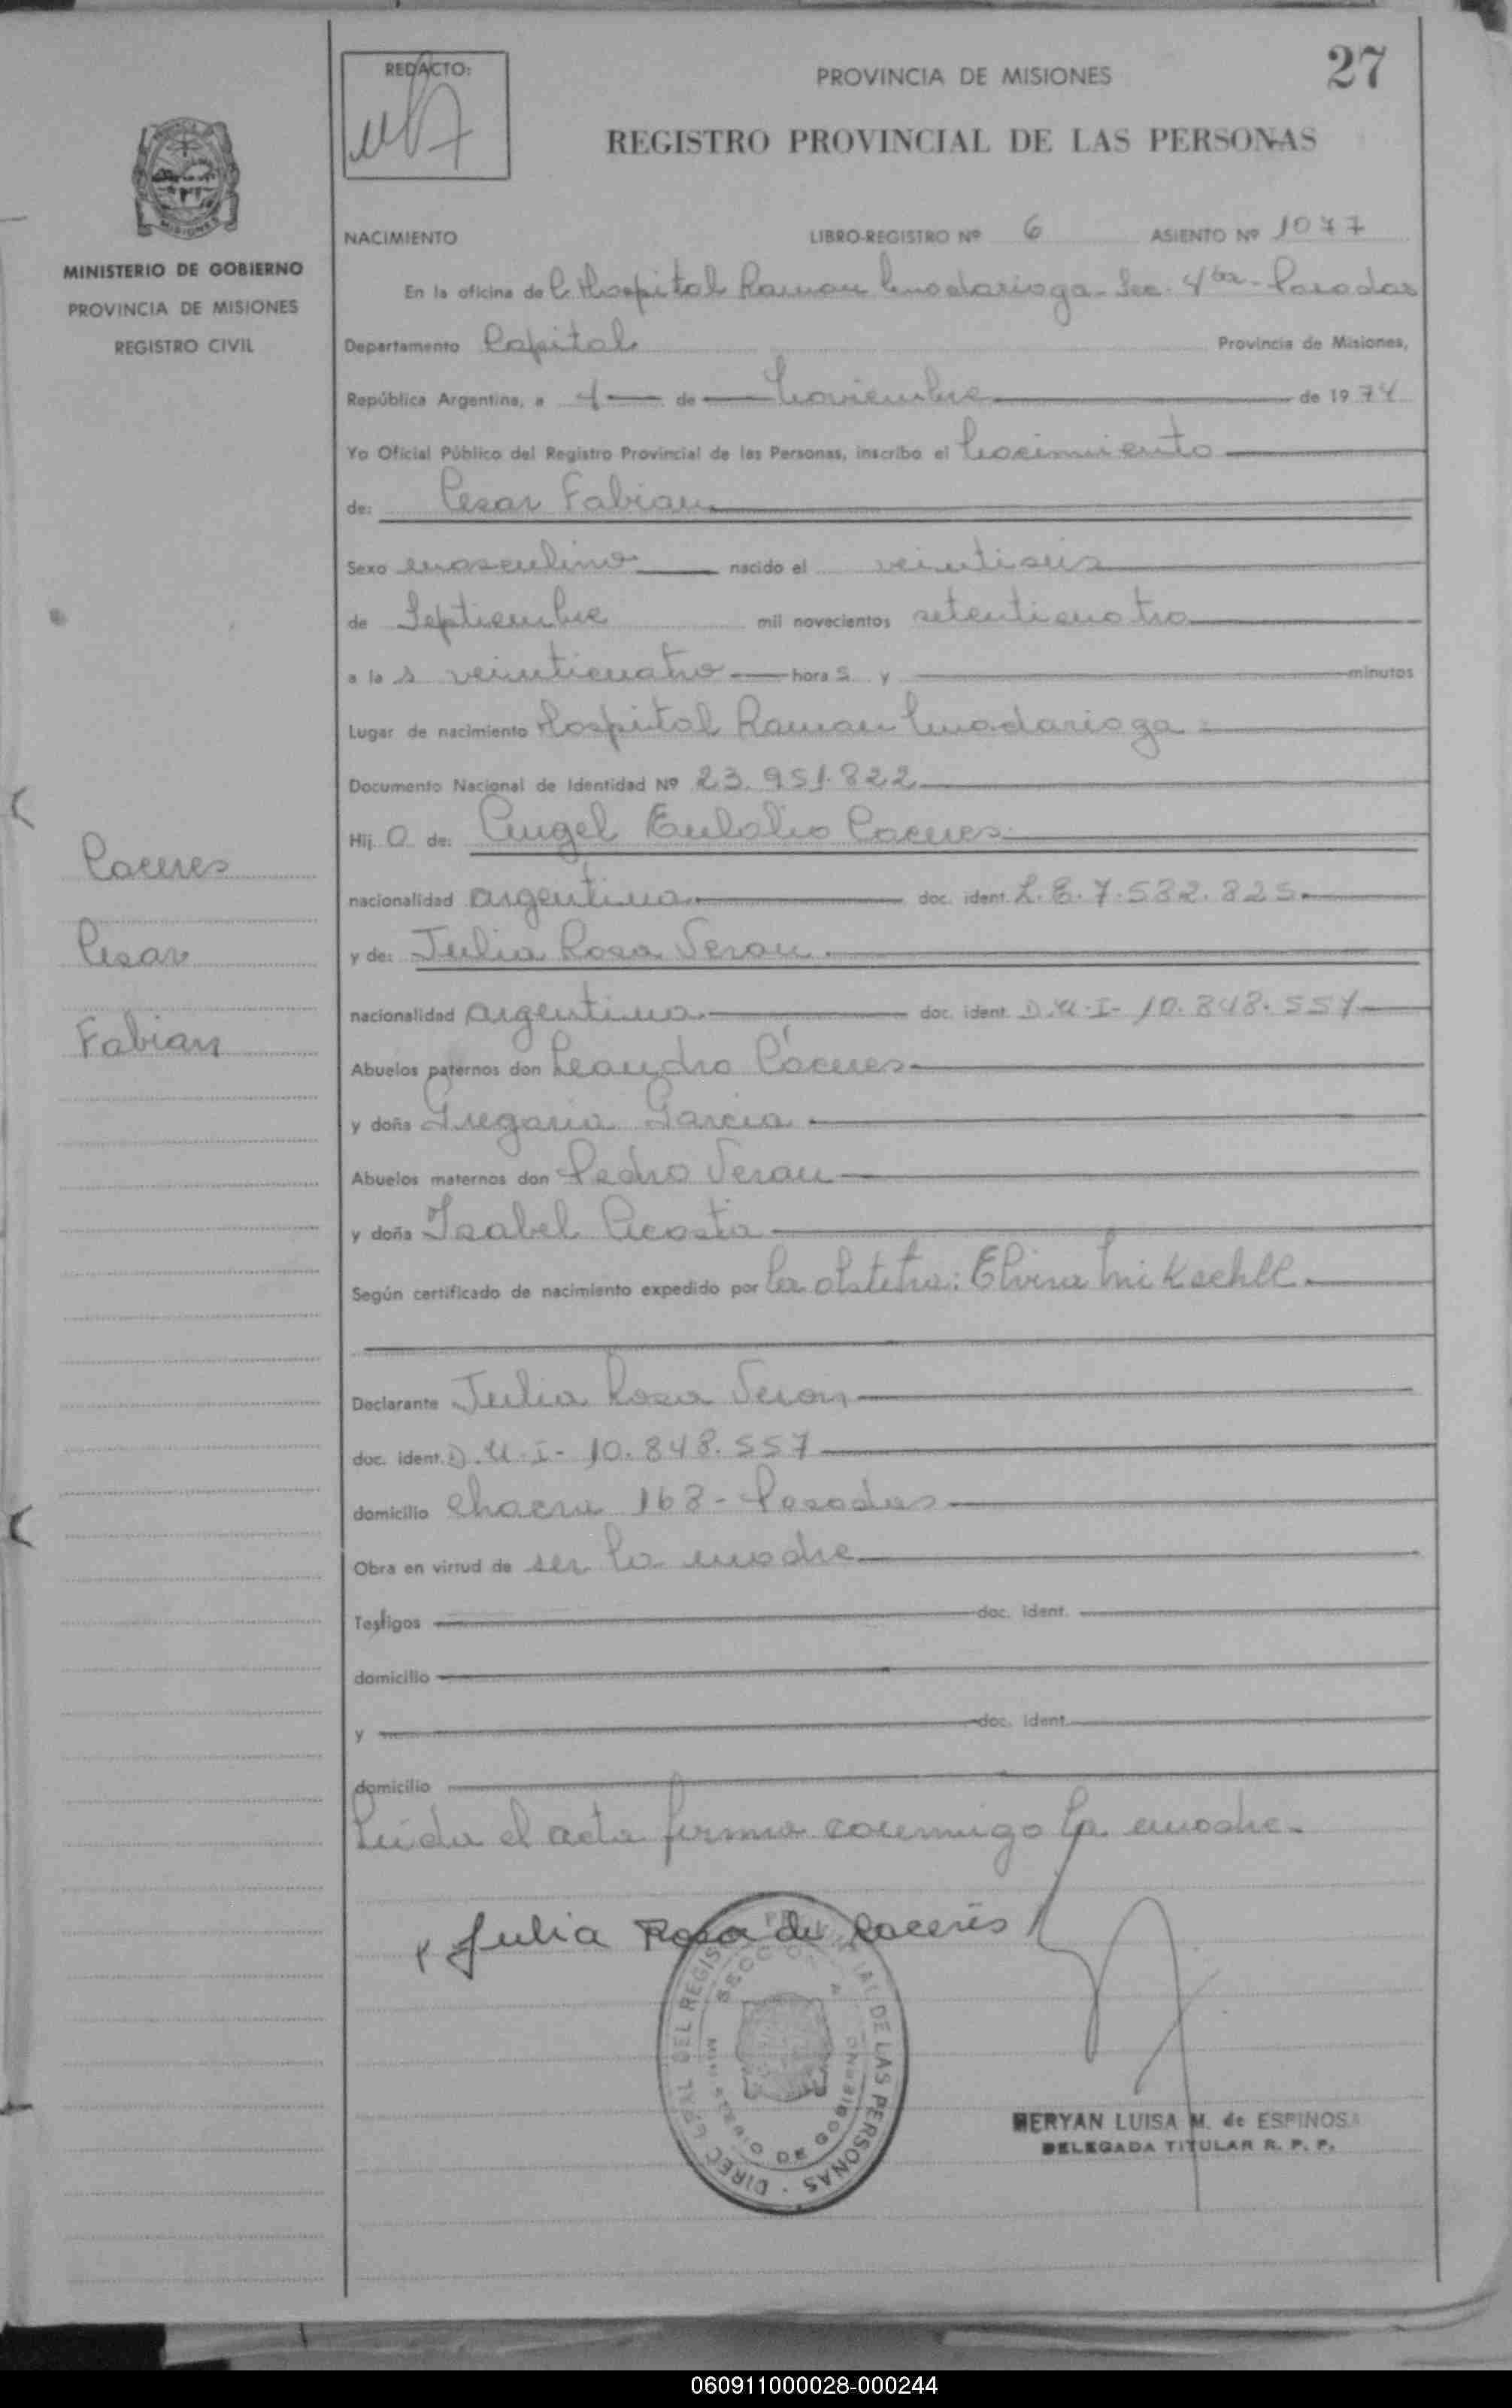 27
REDACTO:
PROVINCIA DE MISIONES
REGISTRO PROVINCIAL DE LAS PERSONAS
MISIONES
MINISTERIO DE GOBIERNO
PROVINCIA DE MISIONES
REGISTRO CIVIL
NACIMIENTO LIBRO-REGISTRO Nº 6 ASIENTO Nº 1077
En la oficina del Hospital Ramon Madariaga - Sec. 4ta - Posadas
Departamento Capital Provincia de Misiones,
República Argentina, a 4 de Noviembre de 1974
Yo Oficial Público del Registro Provincial de las Personas, inscribo el Nacimiento
de: Cesar Fabian
Sexo masculino nacido el veintiseis
de Septiembre mil novecientos setenticuatro
a la s veinticuatro hora s y minutos
Lugar de nacimiento Hospital Ramon Madariaga
Documento Nacional de Identidad Nº 23.951.822
Hij o de: Angel Eulalio Caceres
nacionalidad argentina doc. ident. L.E. 7.532.825
y de: Julia Rosa Veron
nacionalidad argentina doc. ident. D.U.I- 10.848.557
Abuelos paternos don Leandro Cáceres
y doña Gregoria Garcia
Abuelos maternos don Pedro Veron
y doña Isabel Acosta
Según certificado de nacimiento expedido por la obstetra: Elvira
Declarante Julia Rosa Veron
doc. ident. D.U.I- 10.848.557
domicilio chacra 168 - Posadas
Obra en virtud de ser la madre
Testigos doc. ident.
domicilio
y doc. ident.
domicilio
Leida el acta firma conmigo la madre.
Caceres
Cesar
Fabian
Julia Rosa de Caceres
DIREC. GRAL DEL REGISTRO PROVINCIAL DE LAS PERSONAS
MINISTERIO DE GOBIERNO
MERYAN LUISA M. de ESPINOSA
DELEGADA TITULAR R. P. P.
060911000028-000244